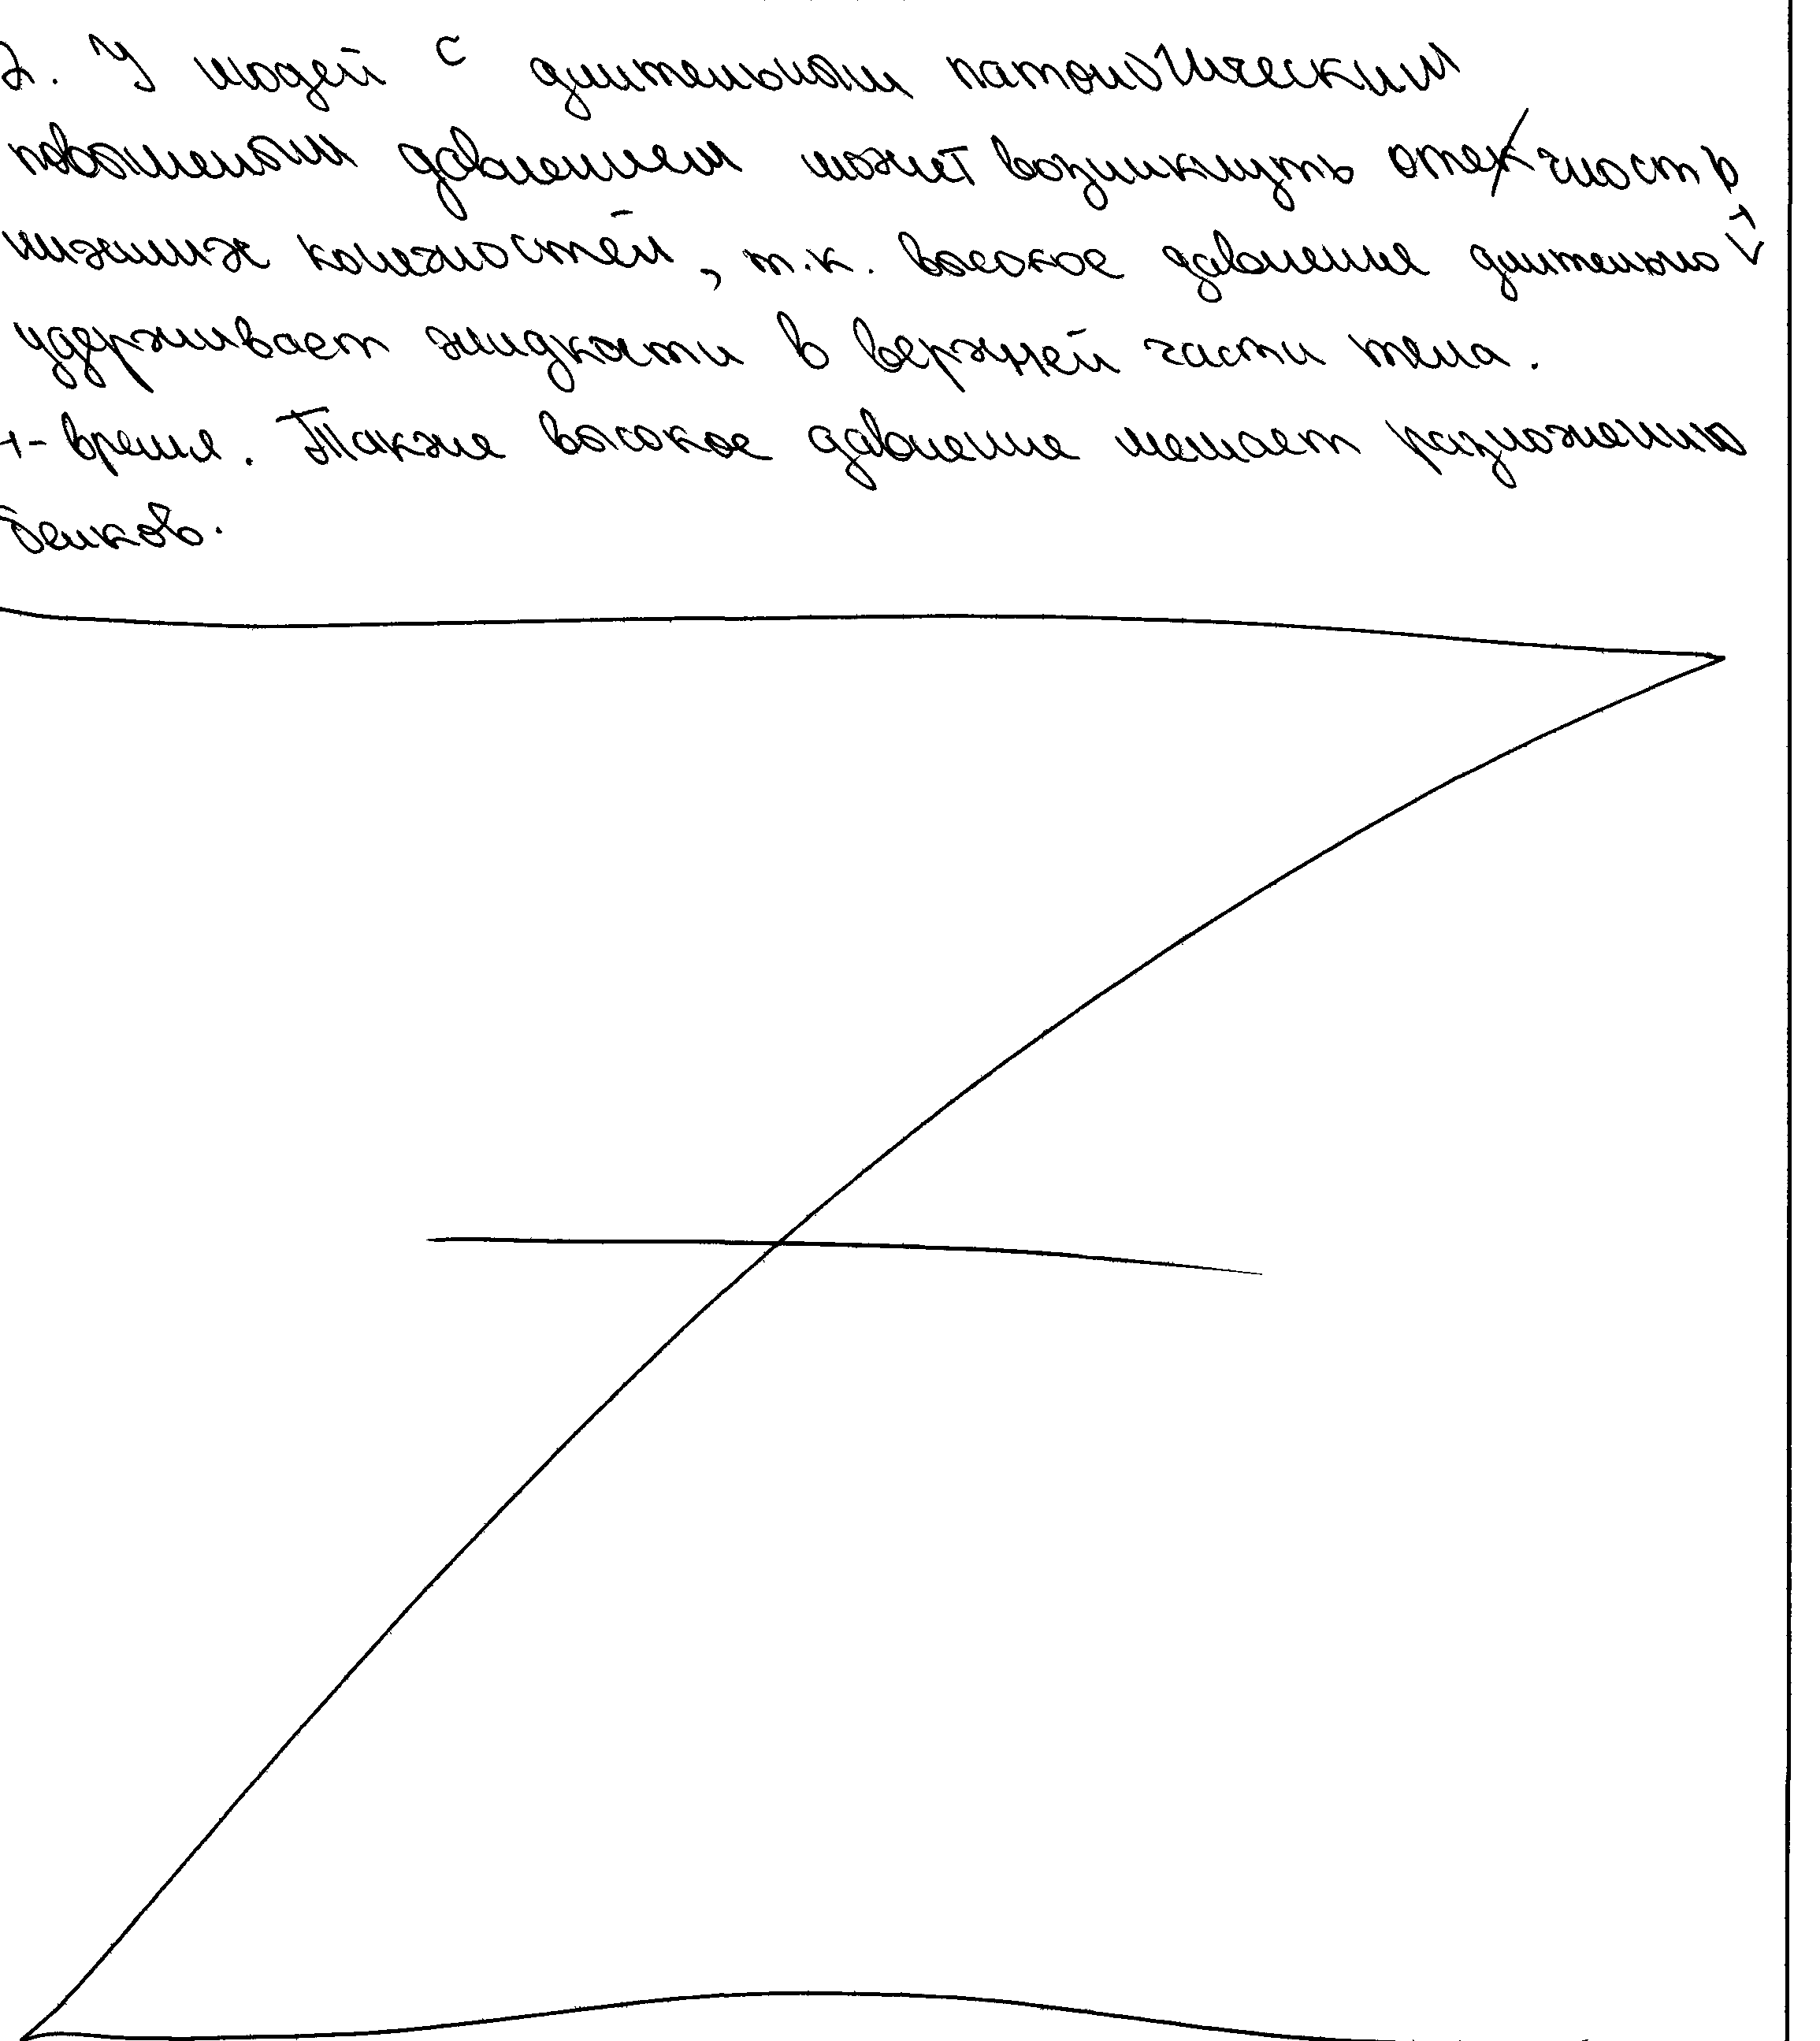 2. У людей с длительным патологическим
повышеным давлением может возникнуть отечность
нижних конечностей, т.к. высокое давление длительно +
удерживает жидкости в верхней части тела.
+- время. Также высокое давление мешает разложению
белков.